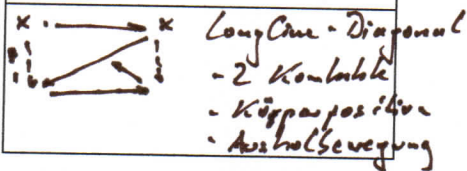 x x Longline - Diagonal
- 2 Kontakte
- Körperposition
- Ausholbewegung